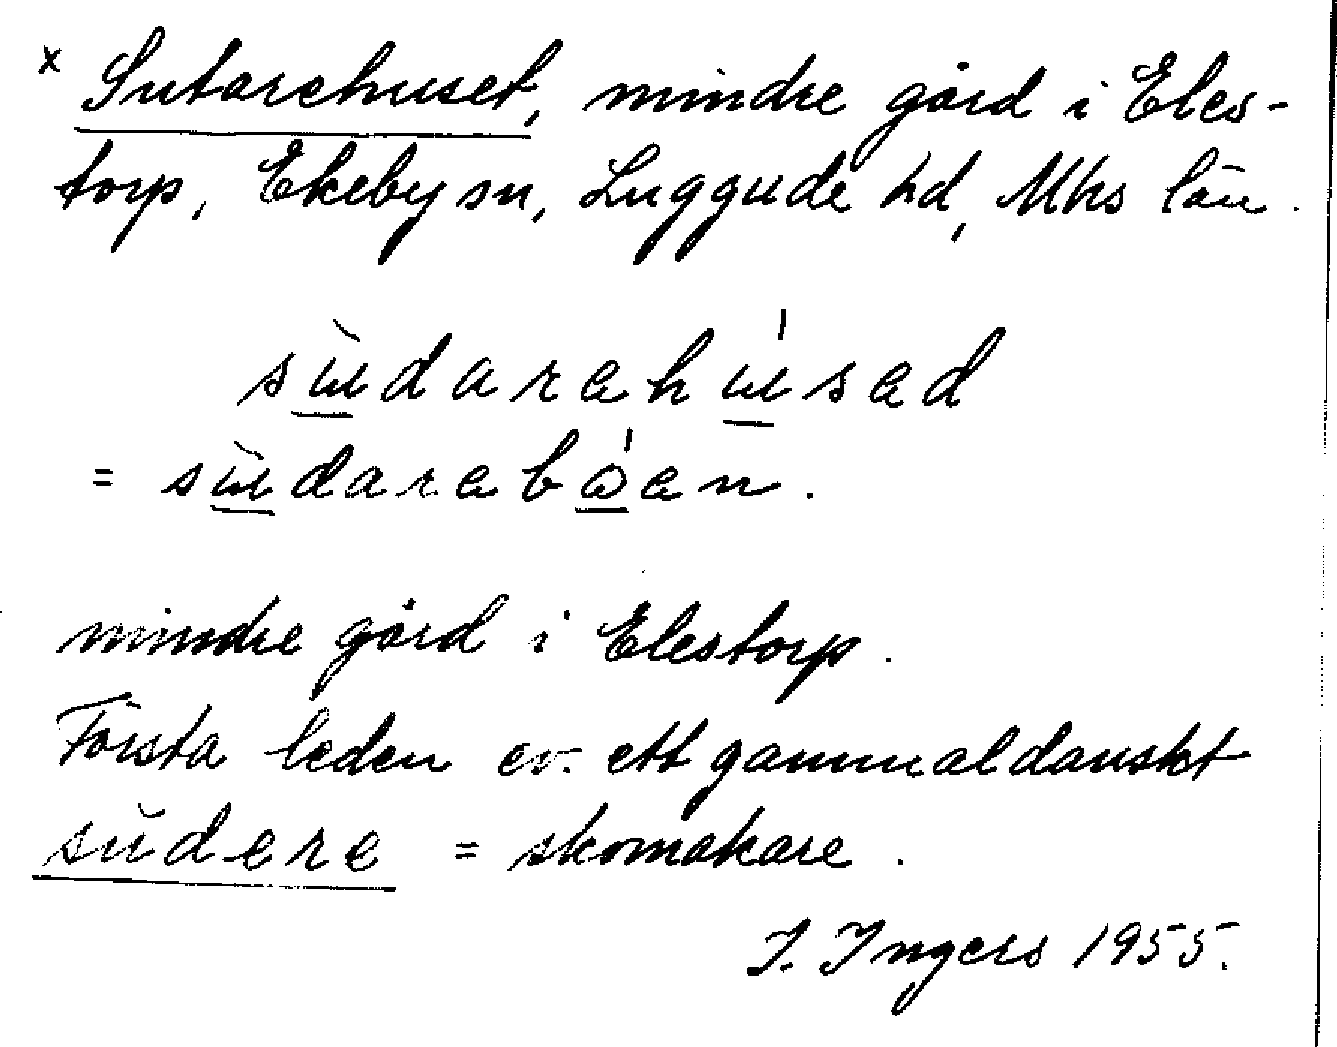 x Sutarehuset, mindre gård i Eles-
torp, Ekeby sn, Luggude hd, Mhs län.
sùdarahúsad
= sùdarabóan.
mindre gård i Elestorp.
Första leden ev. ett gammaldanskt
sūdere = skomakare.
I. Ingers 1955.